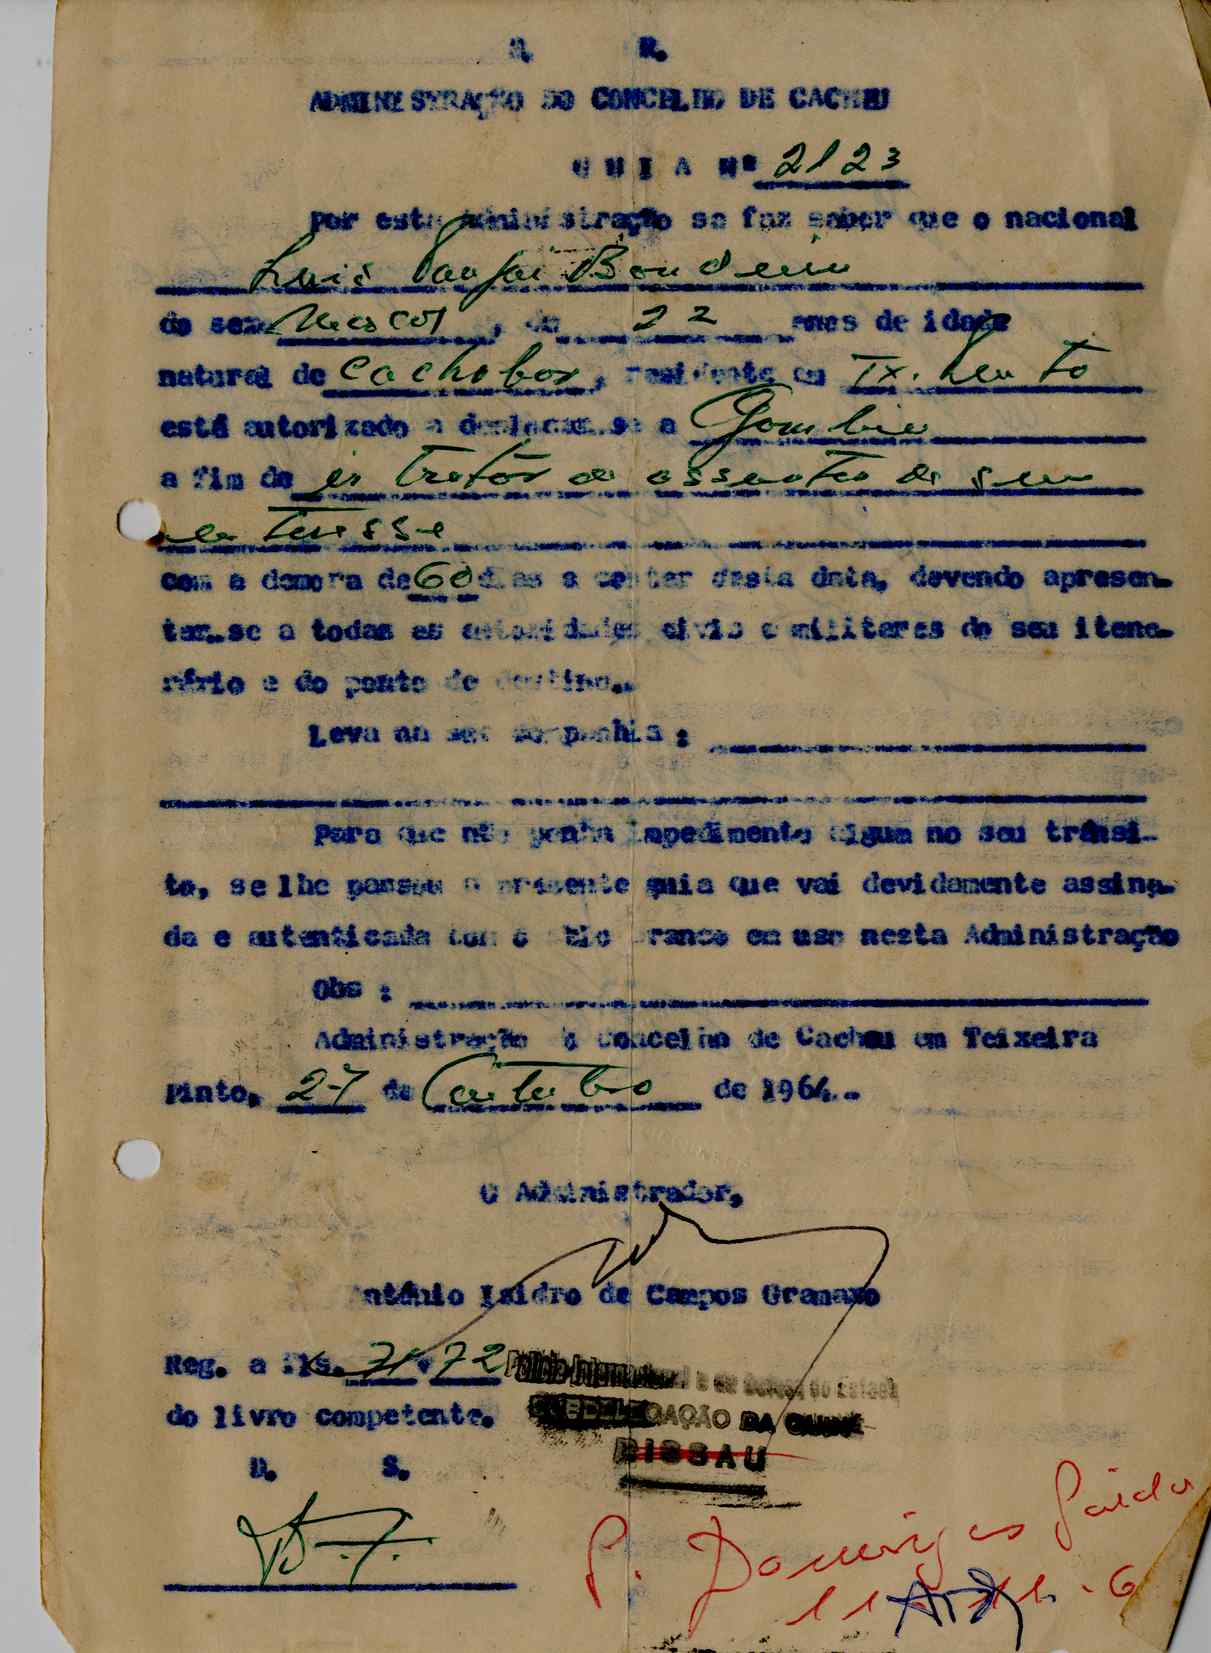 R.
ADMINISTRAÇÃO DO CONCELHO DE CACHEU
GUIA Nº 2123
Por esta Administração se faz saber que o nacional
Luis
do sexo Mascol, de 22 anos de idade
natural de Cachobar, residente em Tx. Pinto
está autorizado a deslocar-se a Gambia
a fim de ir tratar de assuntos de seu
interesse
com a demora de 60 dias a contar desta data, devendo apresen-
tar-se a todas as autoridades civis e militares do seu itene-
rário e do ponto de destino.
Leva na sua companhia :
Para que não ponha impedimento algum no seu trânsi-
to, se lhe passou a presente guia que vai devidamente assina-
da e autenticada com o sêlo branco em uso nesta Administração
Obs :
Administração do Concelho de Cacheu em Teixeira
Pinto, 27 de Outubro de 1964.-
O Administrador,
António Isidro de Campos Granaxo
Reg. a fls. 71v72
do livro competente.
Polícia Internacional e de Defesa do Estado
SUBDELEGAÇÃO DA GUINÉ
BISSAU
D. S.
P. Domingos Saida